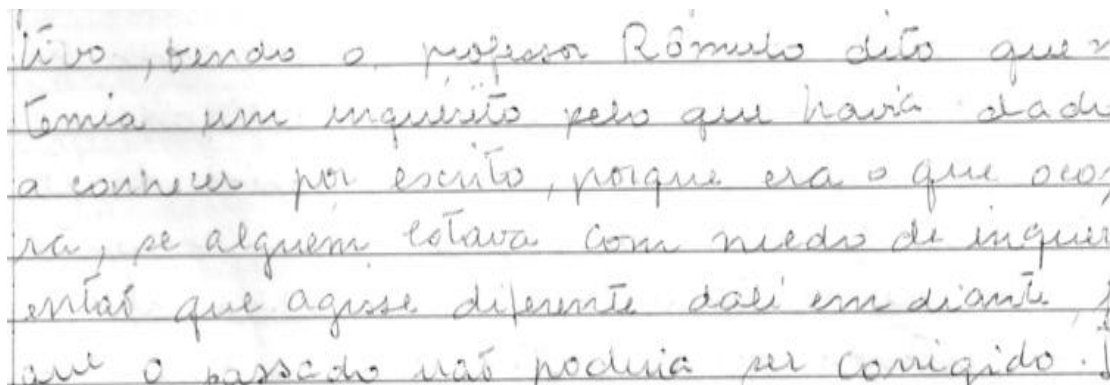 tivo, tendo o professor Rômulo dito que n
temia um inquérito pelo que havia dado
a conhecer por escrito, porque era o que ocor
ra, se alguém estava com medo de inquér
então que agisse diferente dali em diante, p
que o passado não poderia ser corrigido.